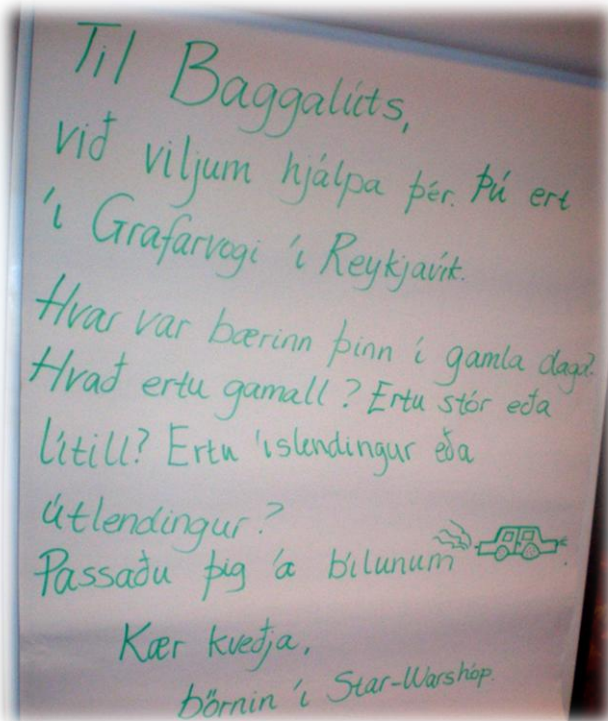 Til Baggalúts,
við viljum hjálpa þér. Þú ert
í Grafarvogi í Reykjavík.
Hvar var bærinn þinn í gamla daga?
Hvað ertu gamall? Ertu stór eða
lítill? Ertu íslendingur eða
útlendingur?
Passaðu þig á bílunum
Kær kveðja,
börnin í Star-Warshóp.